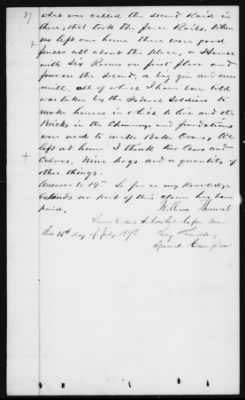 what was called the second Raid in
there, that took the fence Rails, When
we left our home there were good
fences all about the place, a House
with Six Rooms on first floor and
four on the second, a big gin and corn
mill, all of which I have been told
was taken by the Federal Soldiers to
make houses or shick to live and the
Bricks in the Chimneys and foundations
were used to make Bake Ovens, We
left at home I think two Cows and
Calves, Nine hogs and a quantity of
other things.
Answer to 19th So far as my Knowledge
Extends no part of this claim has been
paid.
William
Sworn to and Subscribed before me
this 16th day of July 1873
Special